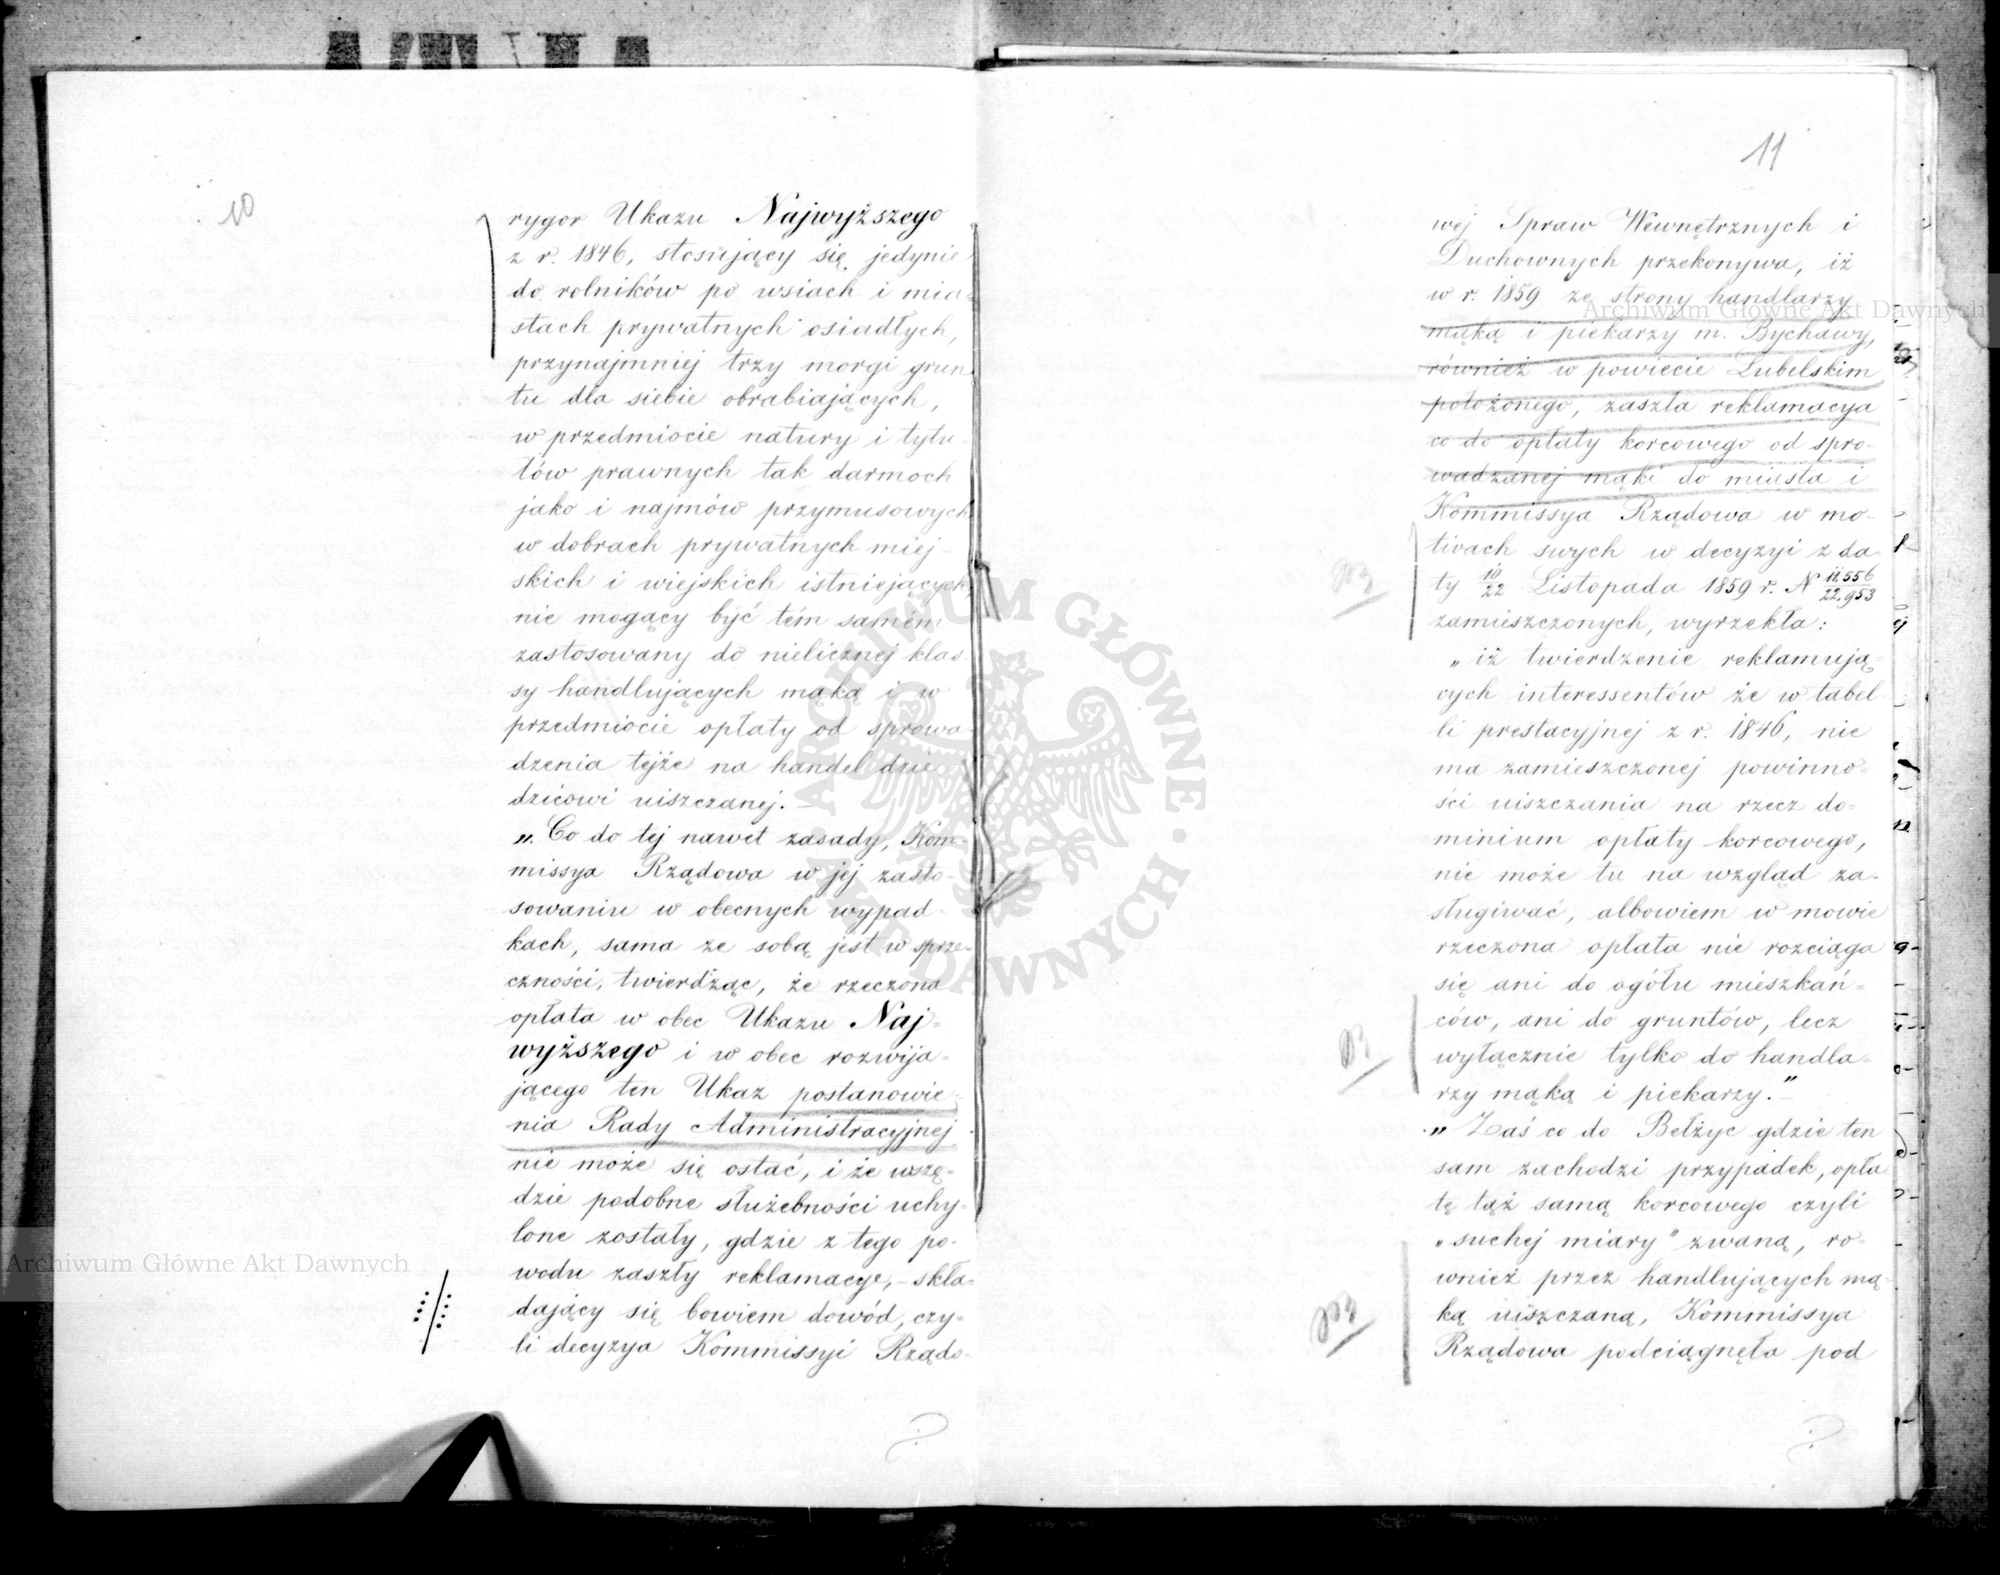 10
rygor Ukazu Najwyższego
z r. 1846, stosujący się jedynie
do rolników po wsiach i mia-
stach prywatnych osiadłych,
przynajmniej trzy morgi grun
tu dla siebie obrabiających,
w przedmiocie natury i tytu-
łów prawnych tak darmoch
jako i najmów przymusowych
w dobrach prywatnych miej-
skich i wiejskich istniejących,
nie mogący być tém samém
zastosowany do nielicznej klas
sy handlujących mąką i w
przedmiocie opłaty od sprowa-
dzenia tejże na handel dzie
dzicowi uiszczanej. —
„Co do tej nawet zasady, Kom-
missya Rządowa w jej zasto-
sowaniu w obecnych wypad-
kach, sama ze sobą jest w sprze-
czności, twierdząc, że rzeczona
opłata w obec Ukazu Naj-
wyższego i w obec rozwija-
jącego ten Ukaz postanowie-
nia Rady Administracyjnej
nie może się ostać, i że wszę-
dzie podobne służebności uchy-
lone zostały, gdzie z tego po-
wodu zaszły reklamacye, — skła-
dający się bowiem dowód, czy-
li decyzya Kommissyi Rządo-
11
wej Spraw Wewnętrznych i
Duchownych przekonywa, iż
w r. 1859 ze strony handlarzy
mąką i piekarzy m. Bychawy,
również w powiecie Lubelskim
położonego, zaszła reklamacya
co do opłaty korcowego od spro-
wadzanej mąki do miasta i
Kommissya Rządowa w mo-
tivach swych w decyzyi z da
ty 10/22 Listopada 1859 r. N 11.556/22.953
zamieszczonych, wyrzekła:
„iż twierdzenie reklamują-
cych interessentów że w tabel
li prestacyjnej z r. 1846, nie
ma zamieszczonej powinno-
ści uiszczania na rzecz do-
minium opłaty korcowego,
nie może tu na wzgląd za-
sługiwać, albowiem w mowie
rzeczona opłata nie rozciąga
się ani do ogółu mieszkań-
ców, ani do gruntów, lecz
wyłącznie tylko do handla-
rzy mąką i piekarzy.” —
„Zaś co do Bełżyc gdzie ten
sam zachodzi przypadek, opła
tę tąż samą korcowego czyli
„suchej miary” zwaną, ro-
wnież przez handlujących mą-
ką uiszczaną, Kommissya
Rządowa podciągnęła pod
Archiwum Główne Akt Dawnych
Archiwum Główne Akt Dawnych
ARCHIWUM GŁÓWNE AKT DAWNYCH